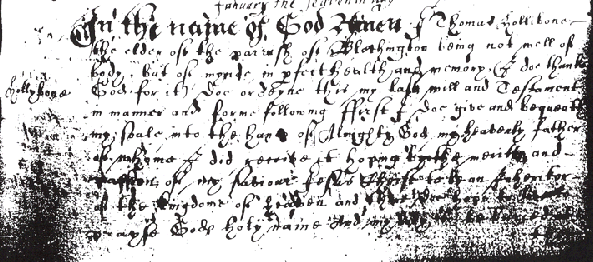 January the seventeenth
In the name of God Amen I Thomas Hollibone
the elder of the parrish of Blachington being not well of
body, but of mynde in pfect health and memory (I doe thanke
Hollybone
God for it) doe ordayne this my last will and Testament
in manner and forme following ffirst I doe give and bequeath
my soule into the hands of Almighty God my heavenly father
of whome I did receive it hoping by the meritts and
passion of my saviour Jesus Christ to be an Inheritor
of the kingdome of heaven and there for ever to
prayse Gods holy name And my body to be buried